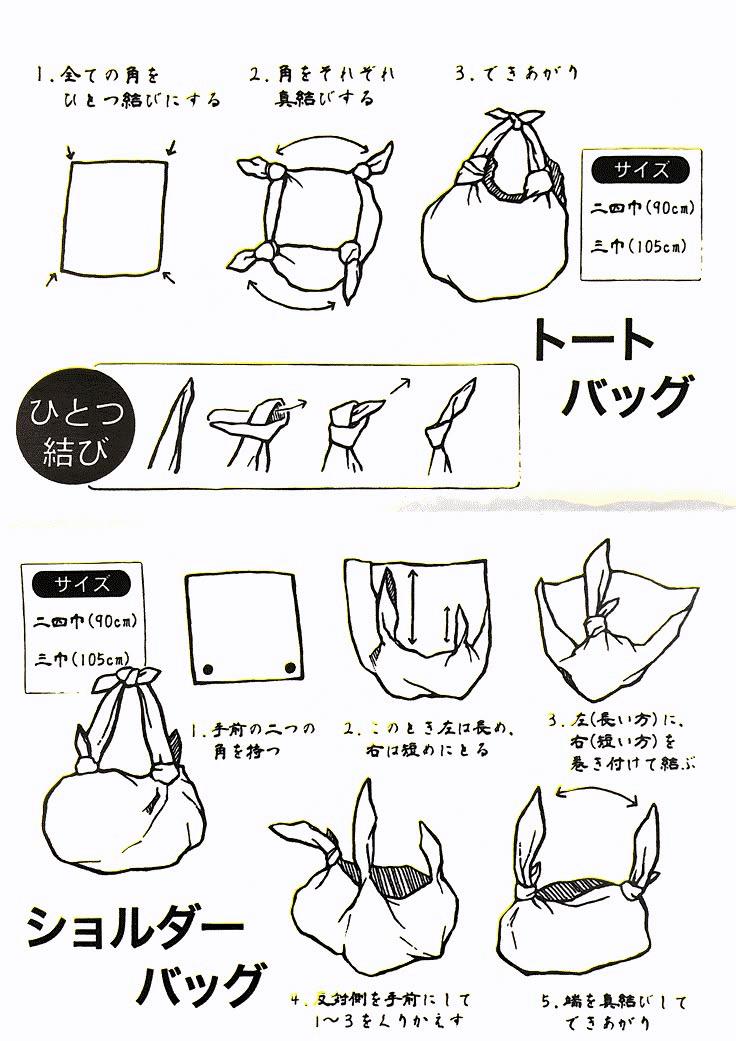 1. 全ての角を
ひとつ結びにする
2. 角をそれぞれ
真結びする
3. できあがり
サイズ
二四巾(90cm)
三巾(105cm)
トート
バッグ
ひとつ
結び
サイズ
二四巾(90cm)
三巾(105cm)
1. 手前の二つの
角を持つ
2. このとき左は長め、
右は短めにとる
3. 左(長い方)に、
右(短い方)を
巻き付けて結ぶ
ショルダー
バッグ
4. 反対側を手前にして
1〜3をくりかえす
5. 端を真結びして
できあがり